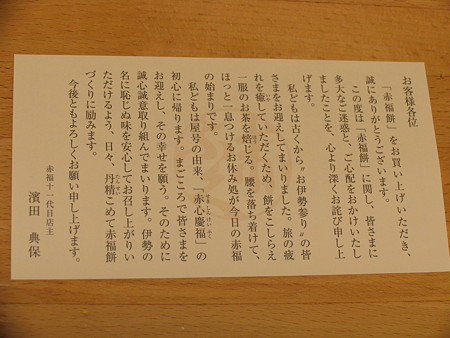 お客様各位
「赤福餅」をお買い上げいただき、
誠にありがとうございます。
この度は「赤福餅」に関し、皆さまに
多大なご迷惑と、ご心配をおかけいたし
ましたことを、心より深くお詫び申し上
げます。
私どもは古くから〝お伊勢参り〟の皆
さまをお迎えしてまいりました。旅の疲
れを癒していただくため、餅をこしらえ
一服のお茶を焙じる。腰を落ち着けて、
ほっと一息つけるお休み処が今日の赤福
の始まりです。
私どもは屋号の由来、「赤心慶福」の
初心に帰ります。まごころで皆さまを
お迎えし、その幸せを願う。そのために
誠心誠意取り組んでまいります。伊勢の
名に恥じぬ味を安心してお召し上がりい
ただけるよう、日々、丹精こめて赤福餅
づくりに励みます。
今後ともよろしくお願い申し上げます。
赤福十一代目店主
濱田 典保